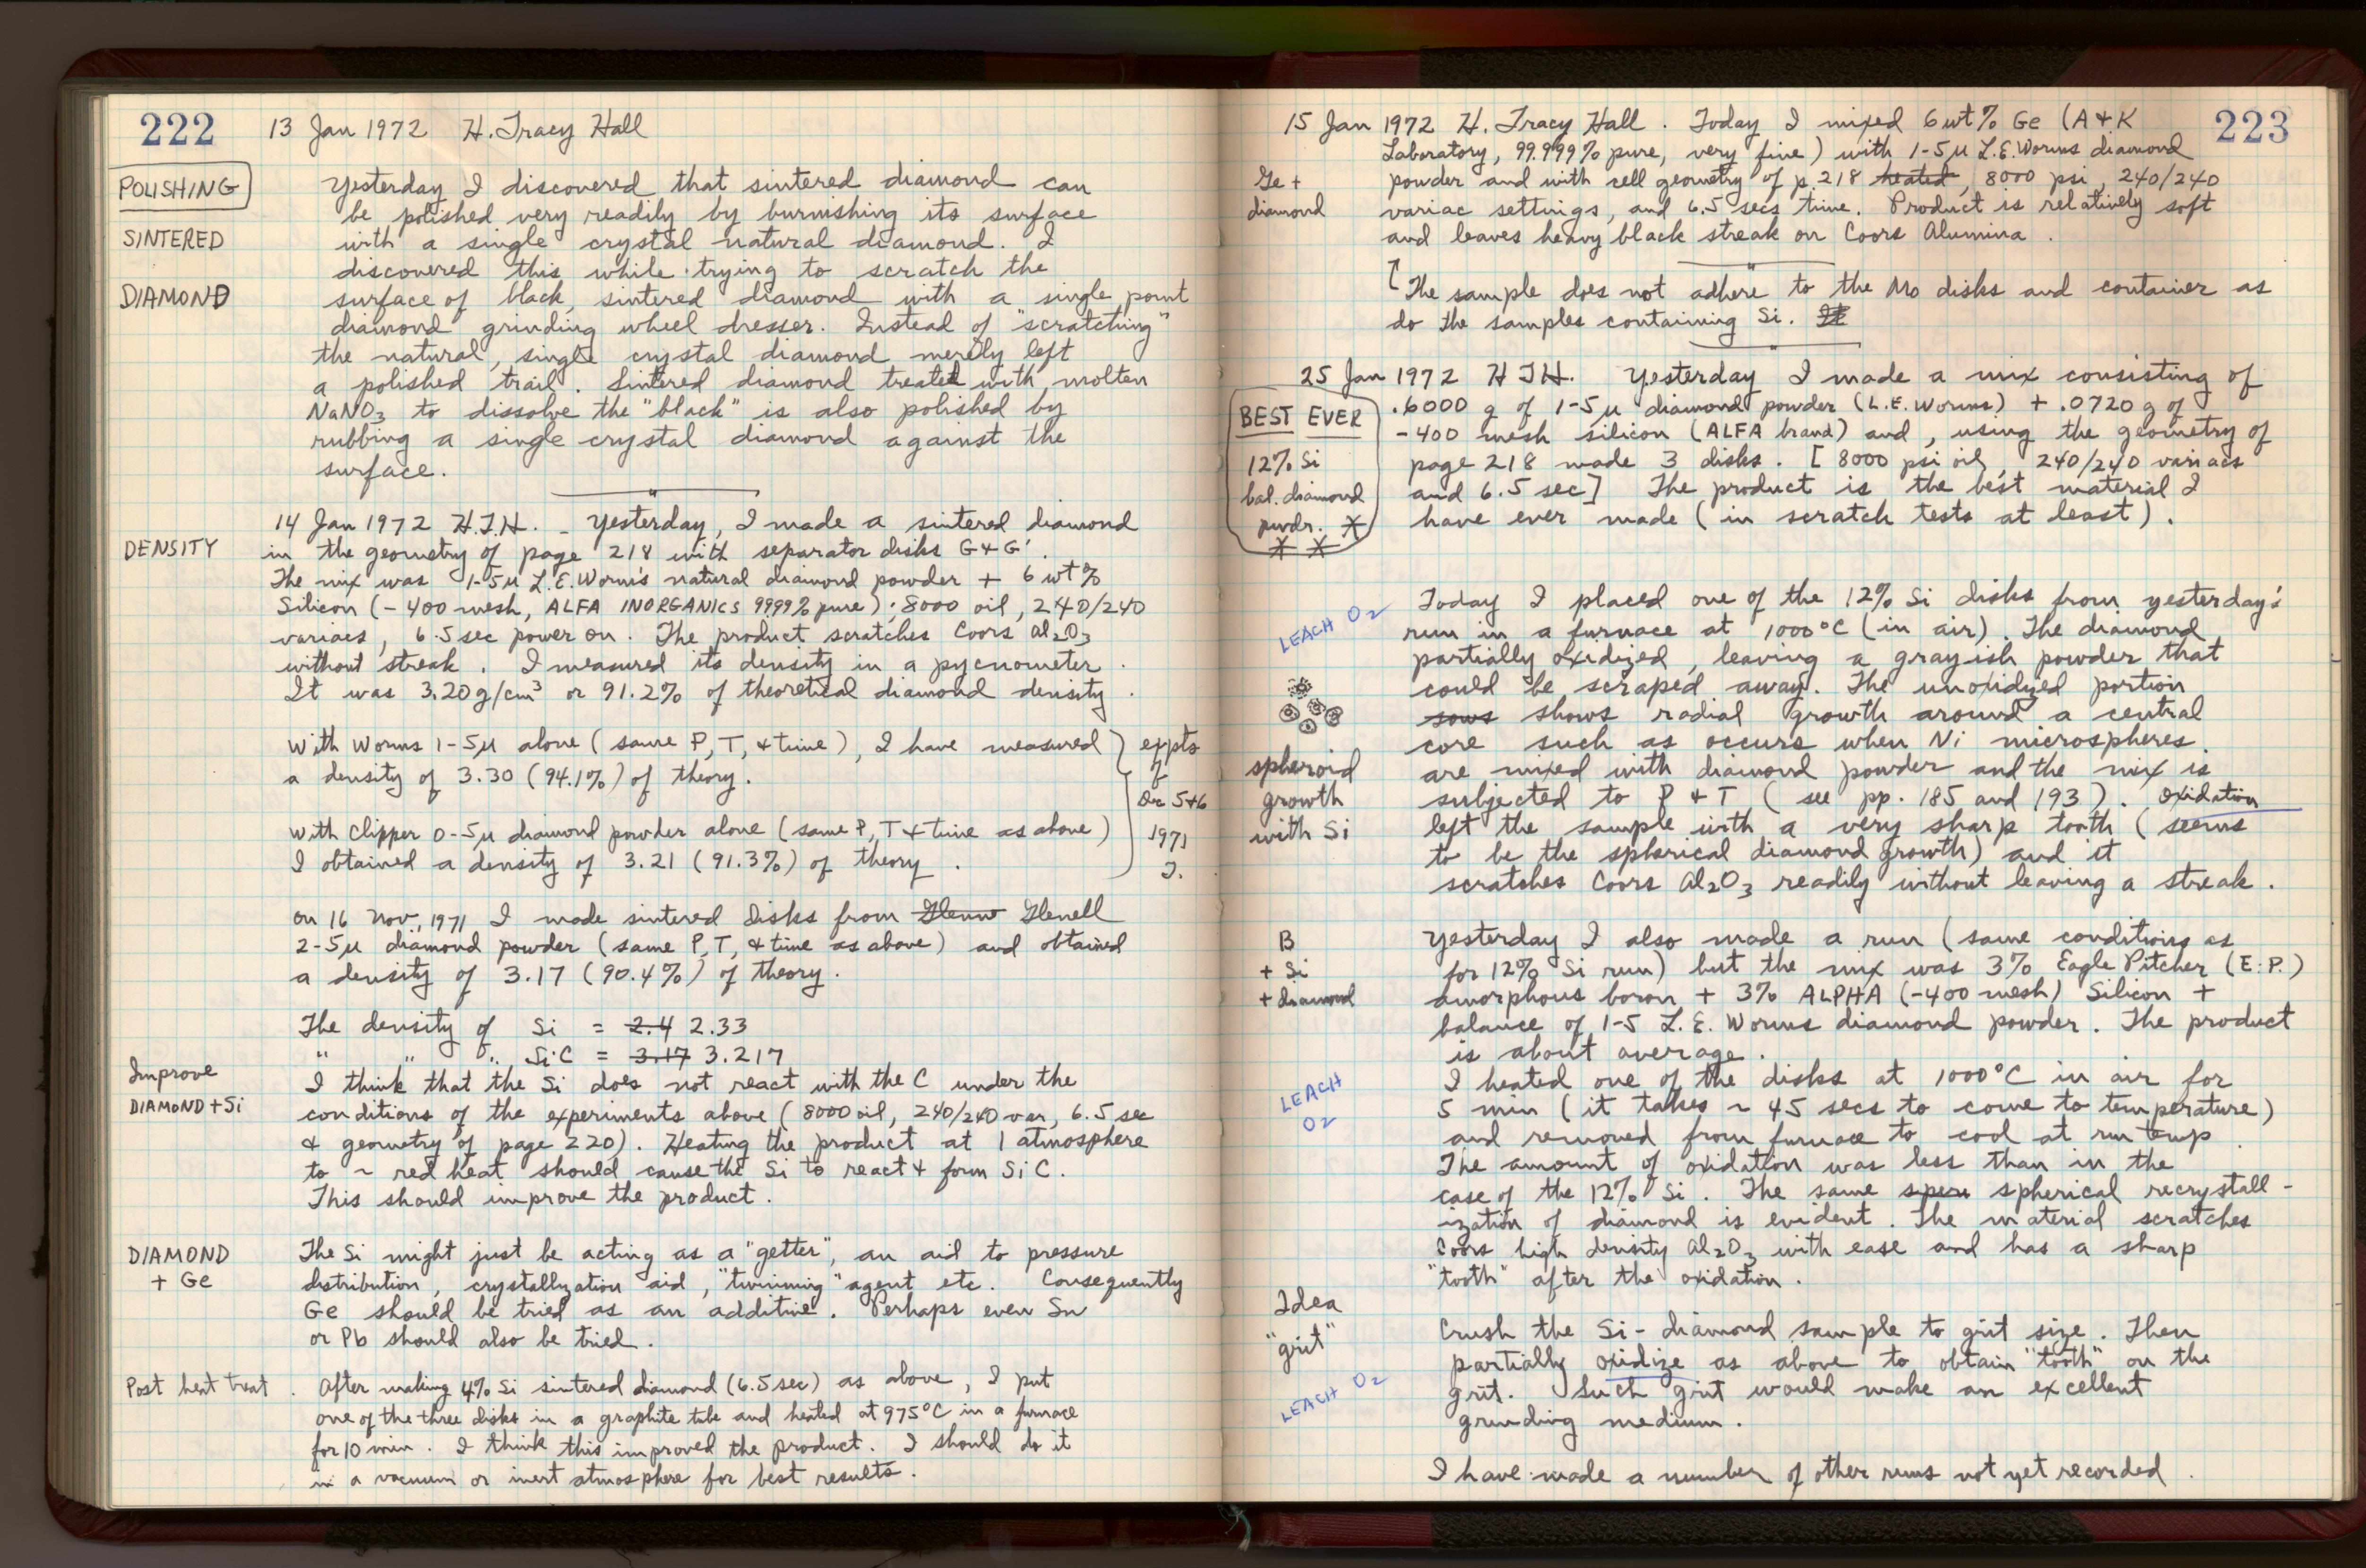 222 13 Jan 1972 H. Tracy Hall
POLISHING
SINTERED
DIAMOND
Yesterday I discovered that sintered diamond can
be polished very readily by burnishing its surface
with a single crystal natural diamond. I
discovered this while trying to scratch the
surface of black, sintered diamond with a single point
diamond grinding wheel dresser. Instead of "scratching"
the natural, single crystal diamond merely left
a polished trail. Sintered diamond treated with molten
NaNO3 to dissolve the "black" is also polished by
rubbing a single crystal diamond against the
surface.
14 Jan 1972 H.T.H. - Yesterday, I made a sintered diamond
DENSITY
in the geometry of page 218 with separator disks G+G'.
The mix was 1-5µ L.E. Worm's natural diamond powder + 6 wt%
Silicon (-400 mesh, ALFA INORGANICS 9999% pure); 8000 oil, 240/240
variacs, 6.5 sec power on. The product scratches Coors Al2O3
without streak. I measured its density in a pycnometer.
It was 3.20 g/cm3 or 91.2% of theoretical diamond density.
With Worms 1-5µ alone (same P, T, + time), I have measured
a density of 3.30 (94.1%) of theory.
With Clipper 0-5µ diamond powder alone (same P, T + time as above)
I obtained a density of 3.21 (91.3%) of theory.
expts
of
Dec 5+6
1971
on 16 Nov., 1971 I made sintered disks from Glenn Glenell
2-5µ diamond powder (same P, T, + time as above) and obtained
a density of 3.17 (90.4%) of theory.
The density of Si = 2.4 2.33
" " " SiC = 3.17 3.217
Improve
DIAMOND + Si
I think that the Si does not react with the C under the
conditions of the experiments above (8000 oil, 240/240 var, 6.5 sec
+ geometry of page 220). Heating the product at 1 atmosphere
to ~ red heat should cause the Si to react + form SiC.
This should improve the product.
DIAMOND
+ Ge
The Si might just be acting as a "getter", an aid to pressure
distribution, crystallization aid, "twinning" agent etc. Consequently
Ge should be tried as an additive. Perhaps even Sn
or Pb should also be tried.
Post heat treat.
After making 4% Si sintered diamond (6.5 sec) as above, I put
one of the three disks in a graphite tube and heated at 975°C in a furnace
for 10 min. I think this improved the product. I should do it
in a vacuum or inert atmosphere for best results.
223
15 Jan 1972 H. Tracy Hall. Today I mixed 6 wt% Ge (A+K
Laboratory, 99.999% pure, very fine) with 1-5µ L.E. Worms diamond
Ge +
diamond
powder and with cell geometry of p. 218 heated, 8000 psi, 240/240
variac settings, and 6.5 secs time. Product is relatively soft
and leaves heavy black streak on Coors Alumina.
The sample does not adhere to the Mo disks and container as
do the samples containing Si. It
25 Jan 1972 HTH. Yesterday I made a mix consisting of
BEST EVER
12% Si
bal. diamond
pwdr. *
* *
.6000 g of 1-5µ diamond powder (L.E. Worms) + .0720 g of
-400 mesh silicon (ALFA brand) and, using the geometry of
page 218 made 3 disks. [8000 psi oil, 240/240 variacs
and 6.5 sec] The product is the best material I
have ever made (in scratch tests at least).
LEACH O2
Today I placed one of the 12% Si disks from yesterday's
run in a furnace at 1000°C (in air). The diamond
partially oxidized, leaving a grayish powder that
could be scraped away. The unoxidized portion
sows shows radial growth around a central
core such as occurs when Ni microspheres
spheroid
growth
with Si
are mixed with diamond powder and the mix is
subjected to P + T (see pp. 185 and 193). Oxidation
left the sample with a very sharp tooth (seems
to be the spherical diamond growth) and it
scratches Coors Al2O3 readily without leaving a streak.
B
+ Si
+ diamond
Yesterday I also made a run (same conditions as
for 12% Si run) but the mix was 3% Eagle Pitcher (E.P.)
amorphous boron + 3% ALPHA (-400 mesh) Silicon +
balance of 1-5 L.E. Worms diamond powder. The product
is about average.
LEACH
O2
I heated one of the disks at 1000°C in air for
5 min (it takes ~ 45 secs to come to temperature)
and removed from furnace to cool at rm temp.
The amount of oxidation was less than in the
case of the 12% Si. The same spere spherical recrystall-
ization of diamond is evident. The material scratches
Coors high density Al2O3 with ease and has a sharp
"tooth" after the oxidation.
Idea
"grit"
LEACH O2
Crush the Si-diamond sample to grit size. Then
partially oxidize as above to obtain "tooth" on the
grit. Such grit would make an excellent
grinding medium.
I have made a number of other runs not yet recorded.